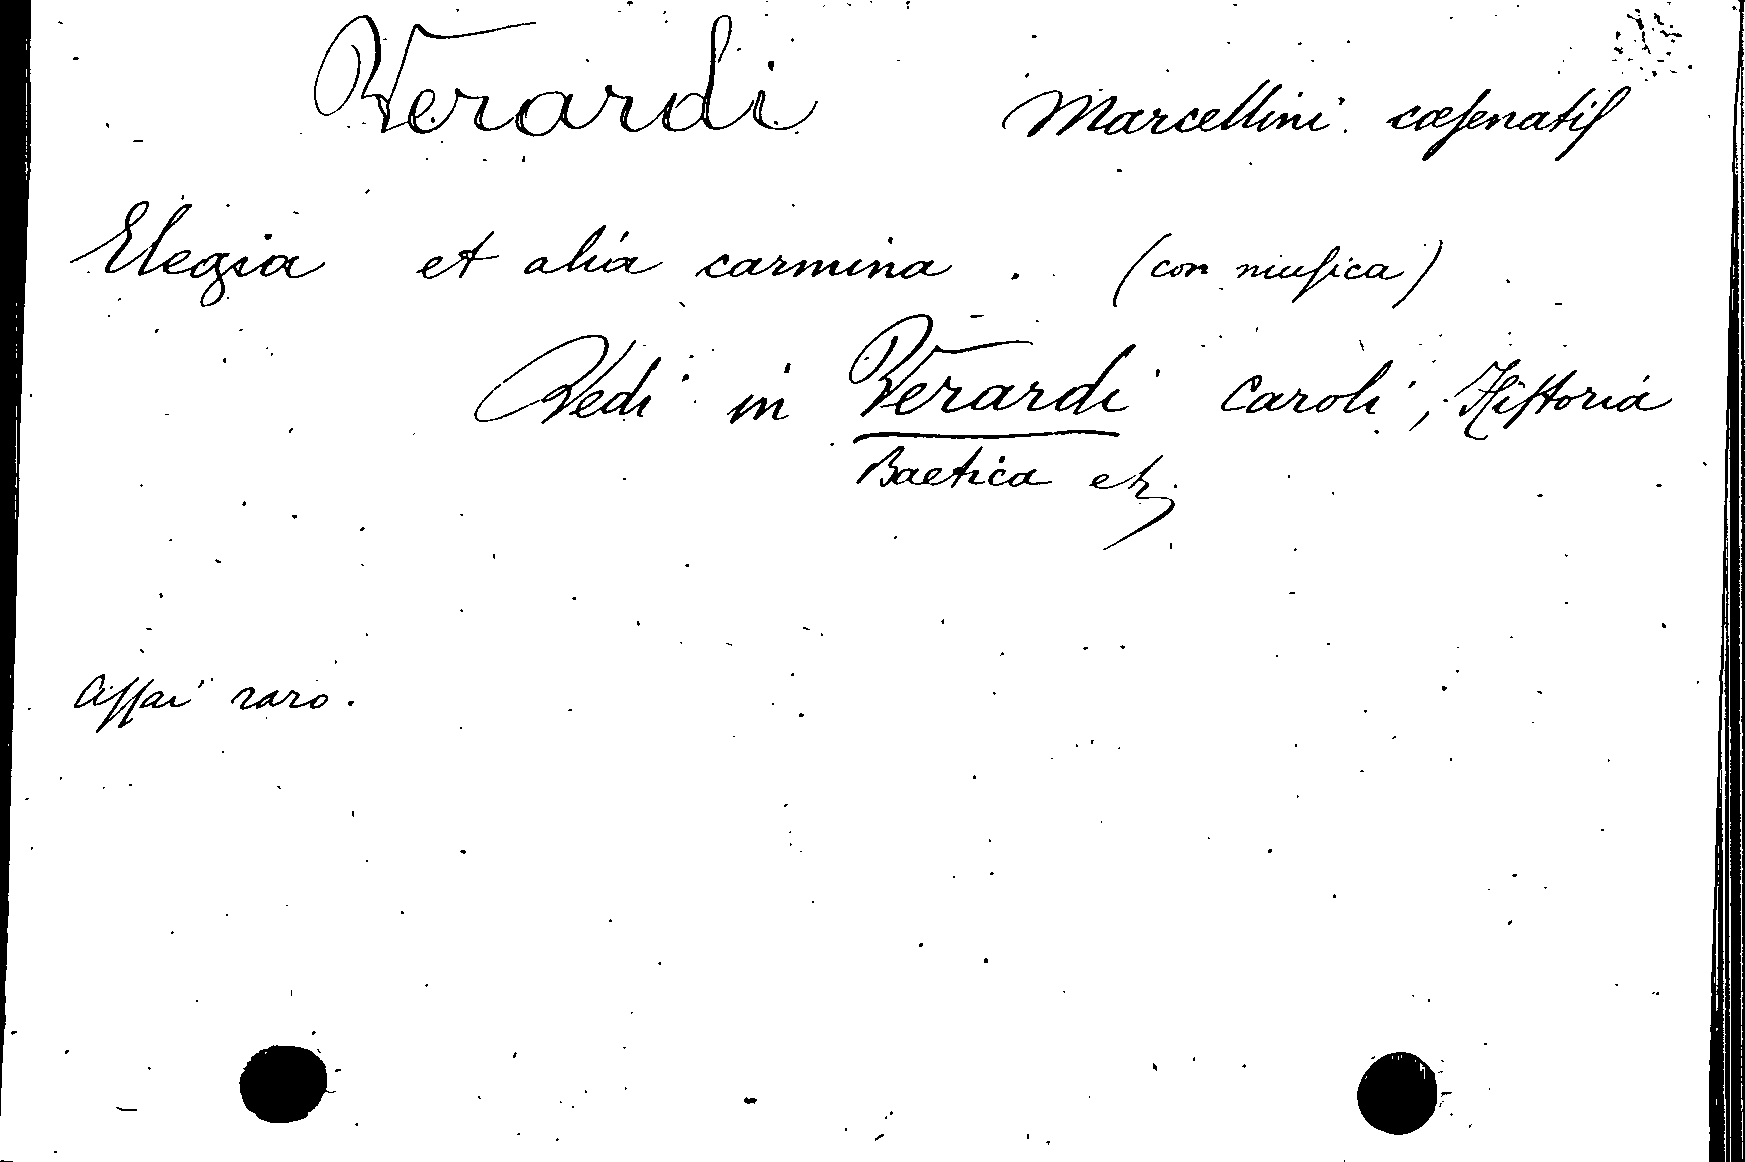 Verardi Marcellini cæsenatis
Elegia et alia carmina . (con musica)
Vedi in Verardi Caroli, Historia
Baetica etz
Assai raro.